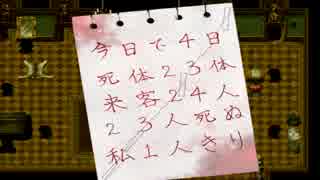 今日で4日
死体23体
来客24人
23人死ぬ
私1人きり